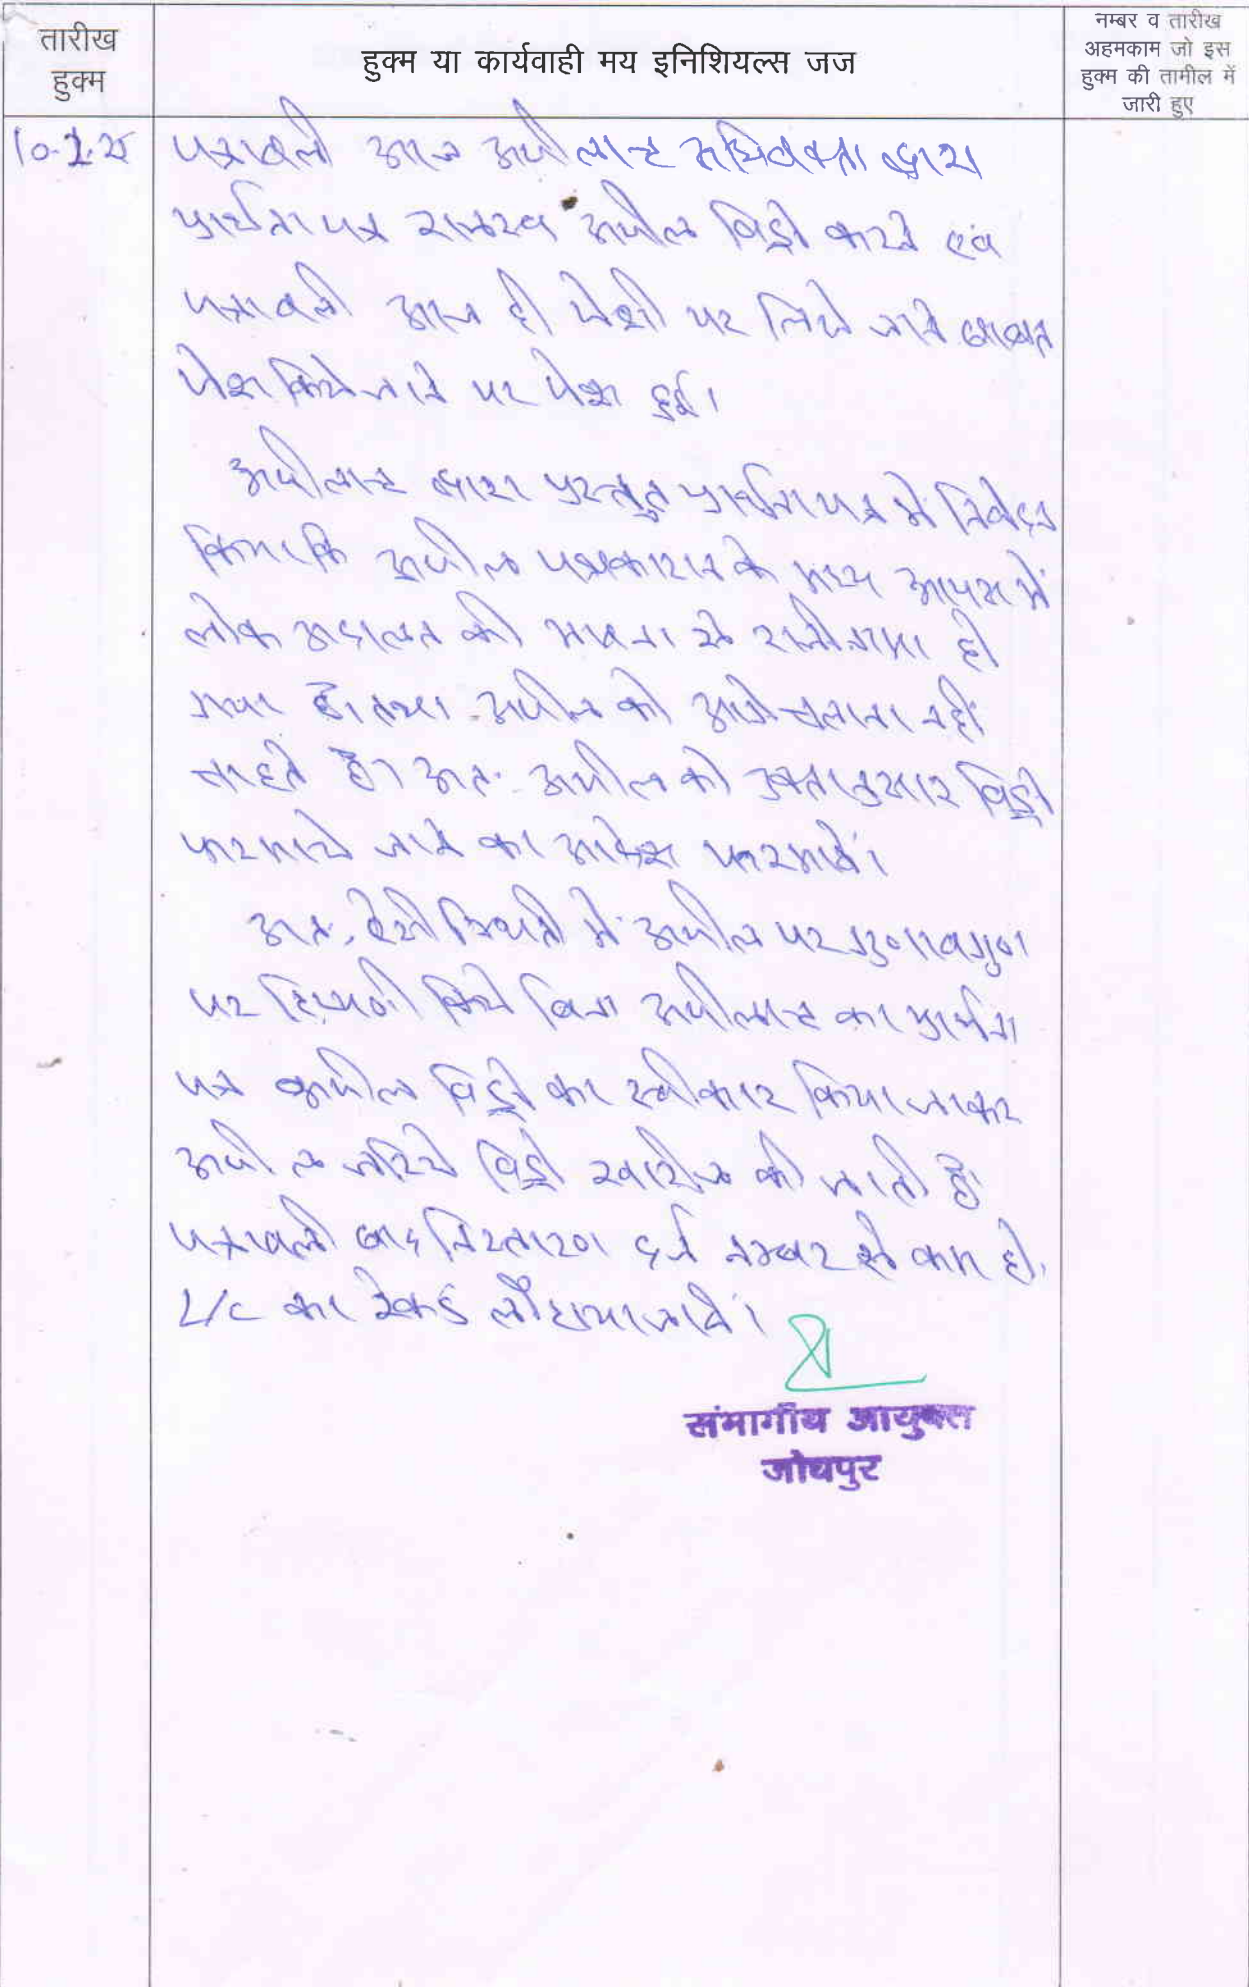 तारीख
हुक्म
हुक्म या कार्यवाही मय इनिशियल्स जज
नम्बर व तारीख
अहमकाम जो इस
हुक्म की तामील में
जारी हुए
पत्रावली आज अपीलान्ट अधिवक्ता द्वारा
प्रार्थना पत्र राजस्व अपील विड्रो करने एवं
पत्रावली आज ही पेशी पर लिये जाने बाबत
पेश किये जाने पर पेश हुई।
अपीलान्ट द्वारा प्रस्तुत प्रार्थना पत्र में निवेदन
किया कि अपील पक्षकारान के मध्य आपस में
लोक अदालत की भावना से राजीनामा हो
गया है। तथा अपील को आगे चलाना नहीं
चाहते है। अतः अपील को उक्तानुसार विड्रो
फरमाये जाने का आदेश फरमावें।
अतः ऐसी स्थिती में अपील पर गुणावगुण
पर टिप्पणी किये बिना अपीलान्ट का प्रार्थना
पत्र अपील विड्रो का स्वीकार किया जाकर
अपील जरिये विड्रो खारीज की जाती है।
पत्रावली बाद निस्तारण दर्ज नम्बर से कम हो।
L/C का रेकर्ड लौटाया जावें।
संभागीय आयुक्त
जोधपुर